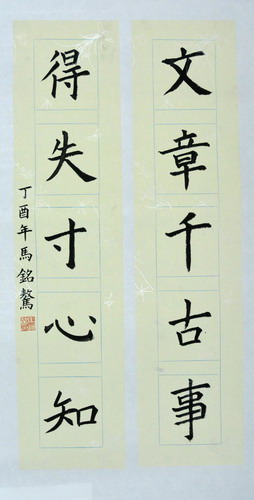 文章千古事
得失寸心知
丁酉年馬銘驁